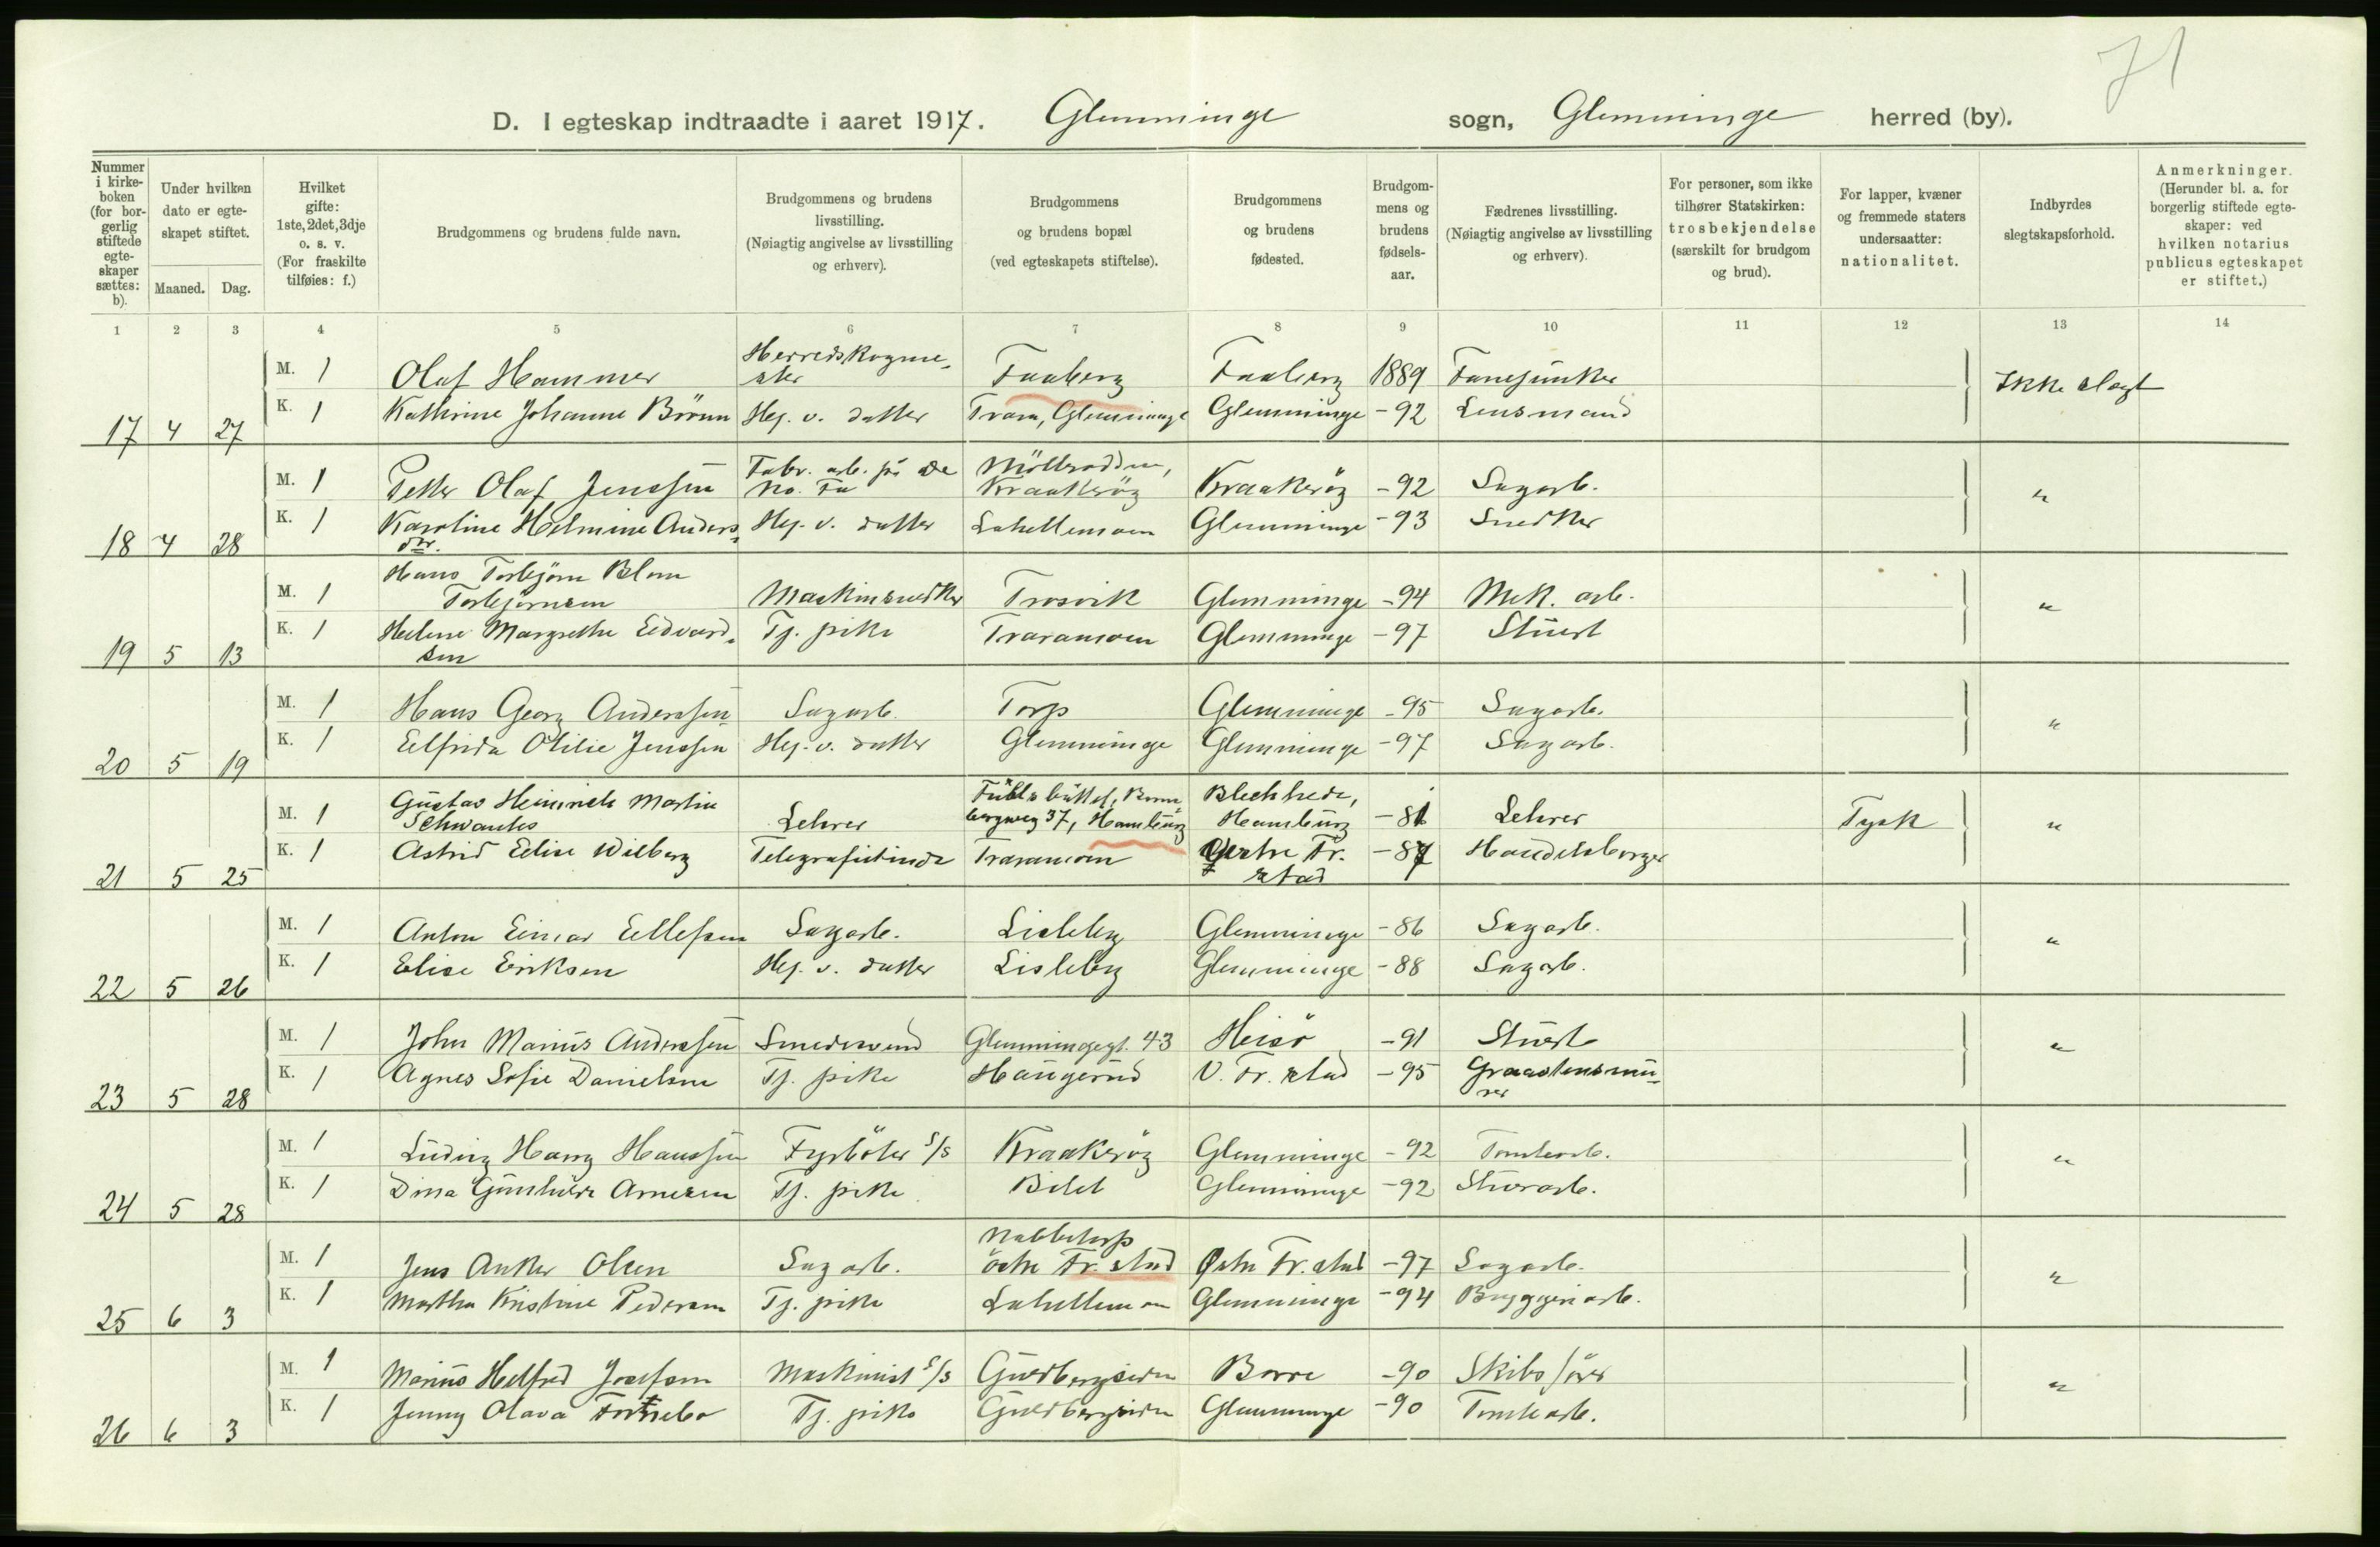 71
D. I egteskap indtraadte i aaret 1917. Glemminge sogn, Glemminge herred (by).
Nummer i kirke-boken (for bor-gerlig stiftede egte-skaper sættes: b).
Under hvilken dato er egte-skapet stiftet.
Maaned. Dag.
Hvilket gifte: 1ste, 2det, 3dje o. s. v. (For fraskilte tilføies: f.)
Brudgommens og brudens fulde navn.
Brudgommens og brudens livsstilling. (Nøiagtig angivelse av livsstilling og erhverv).
Brudgommens og brudens bopæl (ved egteskapets stiftelse).
Brudgommens og brudens fødested.
Brudgom-mens og brudens fødsels-aar.
Fædrenes livsstilling. (Nøiagtig angivelse av livsstilling og erhverv).
For personer, som ikke tilhører Statskirken: trosbekjendelse (særskilt for brudgom og brud).
For lapper, kvæner og fremmede staters undersaatter: nationalitet.
Indbyrdes slegtskapsforhold.
Anmerkninger. (Herunder bl. a. for borgerlig stiftede egte-skaper: ved hvilken notarius publicus egteskapet er stiftet.)
1 2 3 4 5 6 7 8 9 10 11 12 13 14
M. 1 Olaf Hammer Herredskogme-ster Faaberg Faaberg 1889 Fanejunker Ikke slegt
17 4 27 K. 1 Kathrine Johanne Börnn Hej. v. datter Trara, Glemminge Glemminge -92 Lensmand
M. 1 Petter Olaf Jenssen Fabr. arb. på De No. Fa Kraakeröy Kraakeröy -92 Sagarb. "
18 4 28 K. 1 Karoline Helmine Anders-dtr. Hej. v. datter Lahellemoen Glemminge -93 Snedker
M. 1 Hans Torbjörn Blom Torbjörnsen Maskinsnedker Trosvik Glemminge -94 Mek. arb. "
19 5 13 K. 1 Helene Margrethe Edvard-sen Tj. pike Traramoen Glemminge -97 Stuert
M. 1 Hans Georg Anderssen Sagarb. Torp Glemminge -95 Sagarb. "
20 5 19 K. 1 Elfrida Otilie Jenssen Hej. v. datter Glemminge Glemminge -97 Sagarb.
M. 1 Gustav Heinrich Martin Schwantes Lehrer Fuhlsbüttel, Bom-bergweg 37, Hamburg Blechhede, Hamburg -81 Lehrer Tysk "
21 5 25 K. 1 Astrid Elise Wilberg Telegrafistinde Traramoen Östre Fr. stad -87 Handelsborger
M. 1 Anton Einar Ellefsen Sagarb. Lisleby Glemminge -86 Sagarb. "
22 5 26 K. 1 Elise Eriksen Hej. v. datter Lisleby Glemminge -88 Sagarb.
M. 1 John Marius Anderssen Smedsvend Glemmingegt. 43 Heisö -91 Stuert "
23 5 28 K. 1 Agnes Sofie Danielsen Tj. pike Haugerud V. Fr. stad -95 Graastensmu-rer
M. 1 Ludvig Harry Hanssen Fyrböter S/S Kraakeröy Glemminge -92 Tomtearb. "
24 5 28 K. 1 Dina Gunhilda Arnesen Tj. pike Bilet Glemminge -92 Stuerarb.
M. 1 Jens Anker Olsen Sagarb. Nabbetorp östre Fr. stad Östre Fr. stad -97 Sagarb. "
25 6 3 K. 1 Martha Kristine Pedersen Tj. pike Lahellemoen Glemminge -94 Bryggeriarb.
M. 1 Marius Helfred Josefsen Maskinist S/S Guldbergsiden Borre -90 Skibsförer "
26 6 3 K. 1 Jenny Olava Tj. pike Guldbergsiden Glemminge -90 Tomtearb.